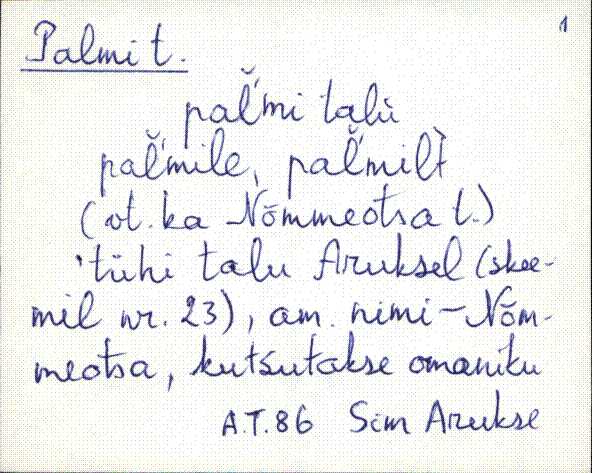 1
Palmi t.
pal̆'mi talu̇
pal̆'mile, pal̆'milt̀
(vt. ka Nõmmeotsa t.)
'tühi talu Aruksel (skee-
mil nr. 23), am. nimi – Nõm-
meotsa, kutsutakse omaniku
A.T.86 Sim Arukse